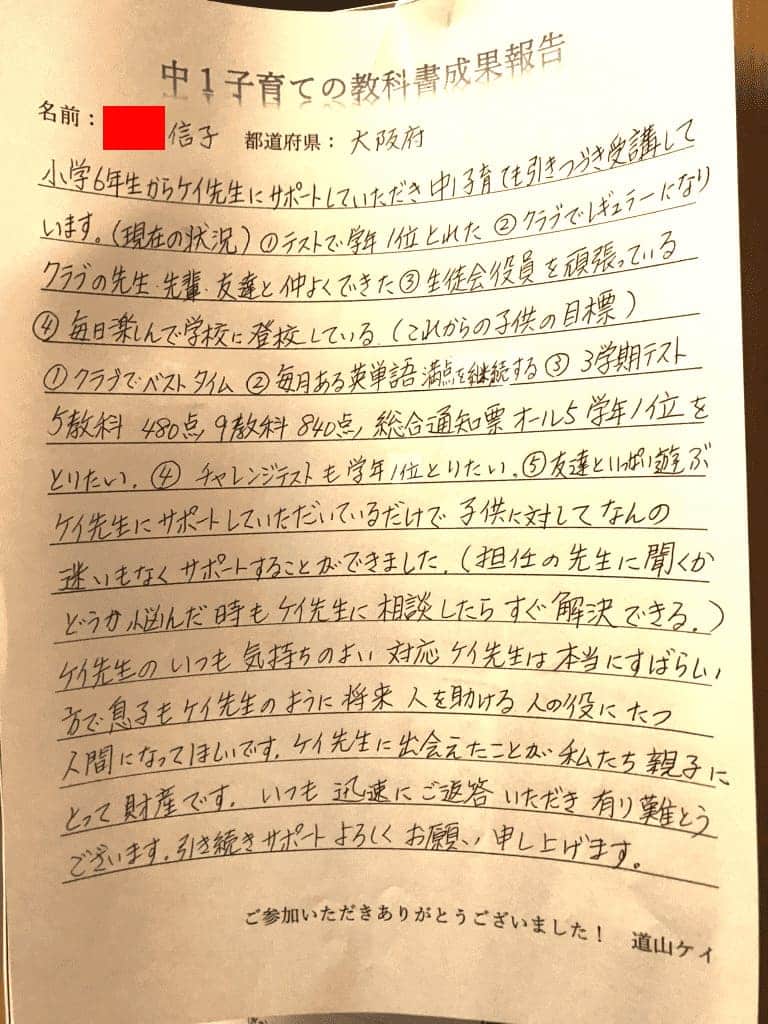 中1子育ての教科書成果報告
名前： 信子 都道府県： 大阪府
小学6年生からケイ先生にサポートしていただき中1子育ても引きつづき受講して
います。(現在の状況) ①テストで学年1位とれた ②クラブでレギュラーになり
クラブの先生・先輩・友達と仲よくできた ③生徒会役員を頑張っている
④毎日楽しんで学校に登校している。(これからの子供の目標)
①クラブでベストタイム ②毎月ある英単語満点を継続する ③3学期テスト
5教科480点, 9教科840点, 総合通知票オール5 学年1位を
とりたい。④チャレンジテストも学年1位とりたい。⑤友達といっぱい遊ぶ
ケイ先生にサポートしていただいているだけで子供に対してなんの
迷いもなくサポートすることができました。(担任の先生に聞くか
どうか悩んだ時もケイ先生に相談したらすぐ解決できる。)
ケイ先生のいつも気持ちのよい対応ケイ先生は本当にすばらしい
方で息子もケイ先生のように将来人を助ける人の役にたつ
人間になってほしいです。ケイ先生に出会えたことが私たち親子に
とって財産です。いつも迅速にご返答いただき有り難とう
ございます。引き続きサポートよろしくお願い申し上げます。
ご参加いただきありがとうございました！ 道山ケイ